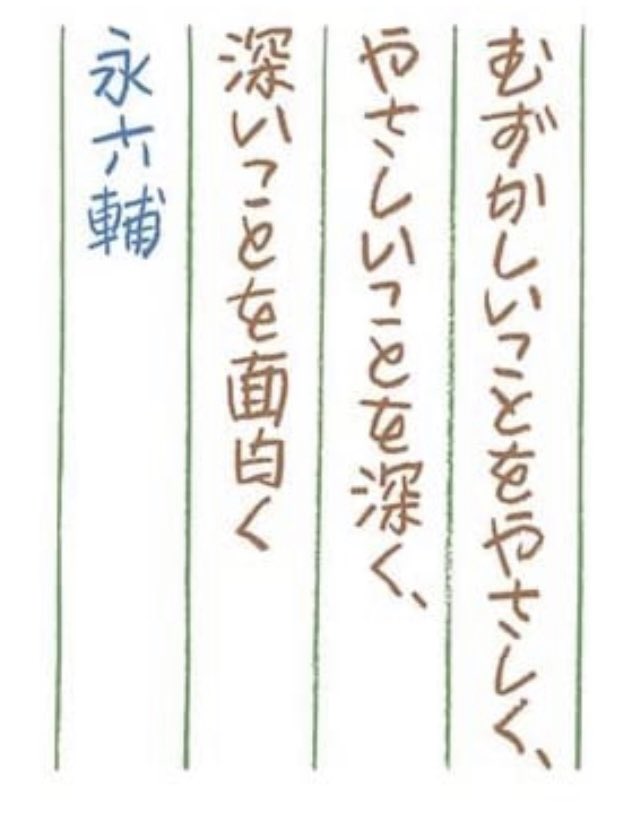 むずかしいことをやさしく、
やさしいことを深く、
深いことを面白く
永六輔